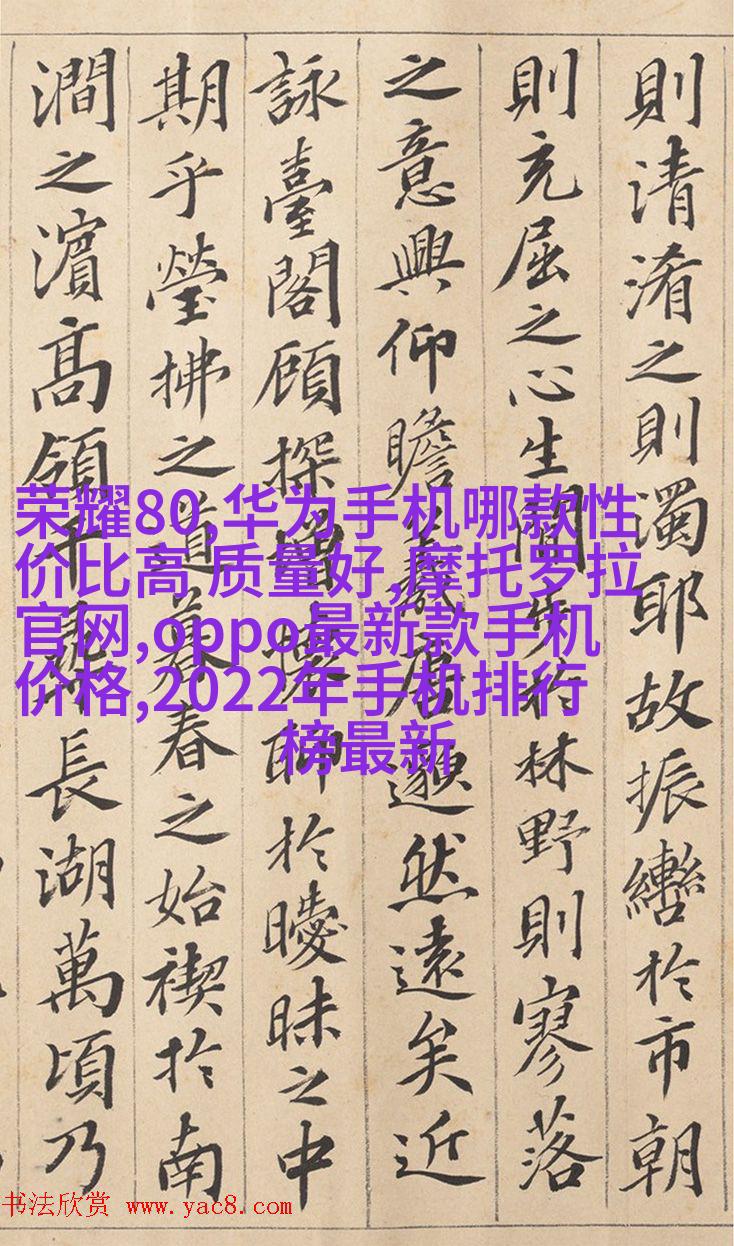 則清淆之則濁耶故振轡於市朝
則充屈之心生閒步於林野則寥落
之意興仰瞻羲唐邈然遠矣近
詠臺閣顧探增懷聊於曖昧之中
期乎瑩拂之道暮春之始禊於南
澗之濱高領千尋長湖萬頃乃
荣耀80,华为手机哪款性
价比高 质量好,摩托罗拉
官网,oppo最新款手机
价格,2022年手机排行
榜最新
书法欣赏 www.yac8.com